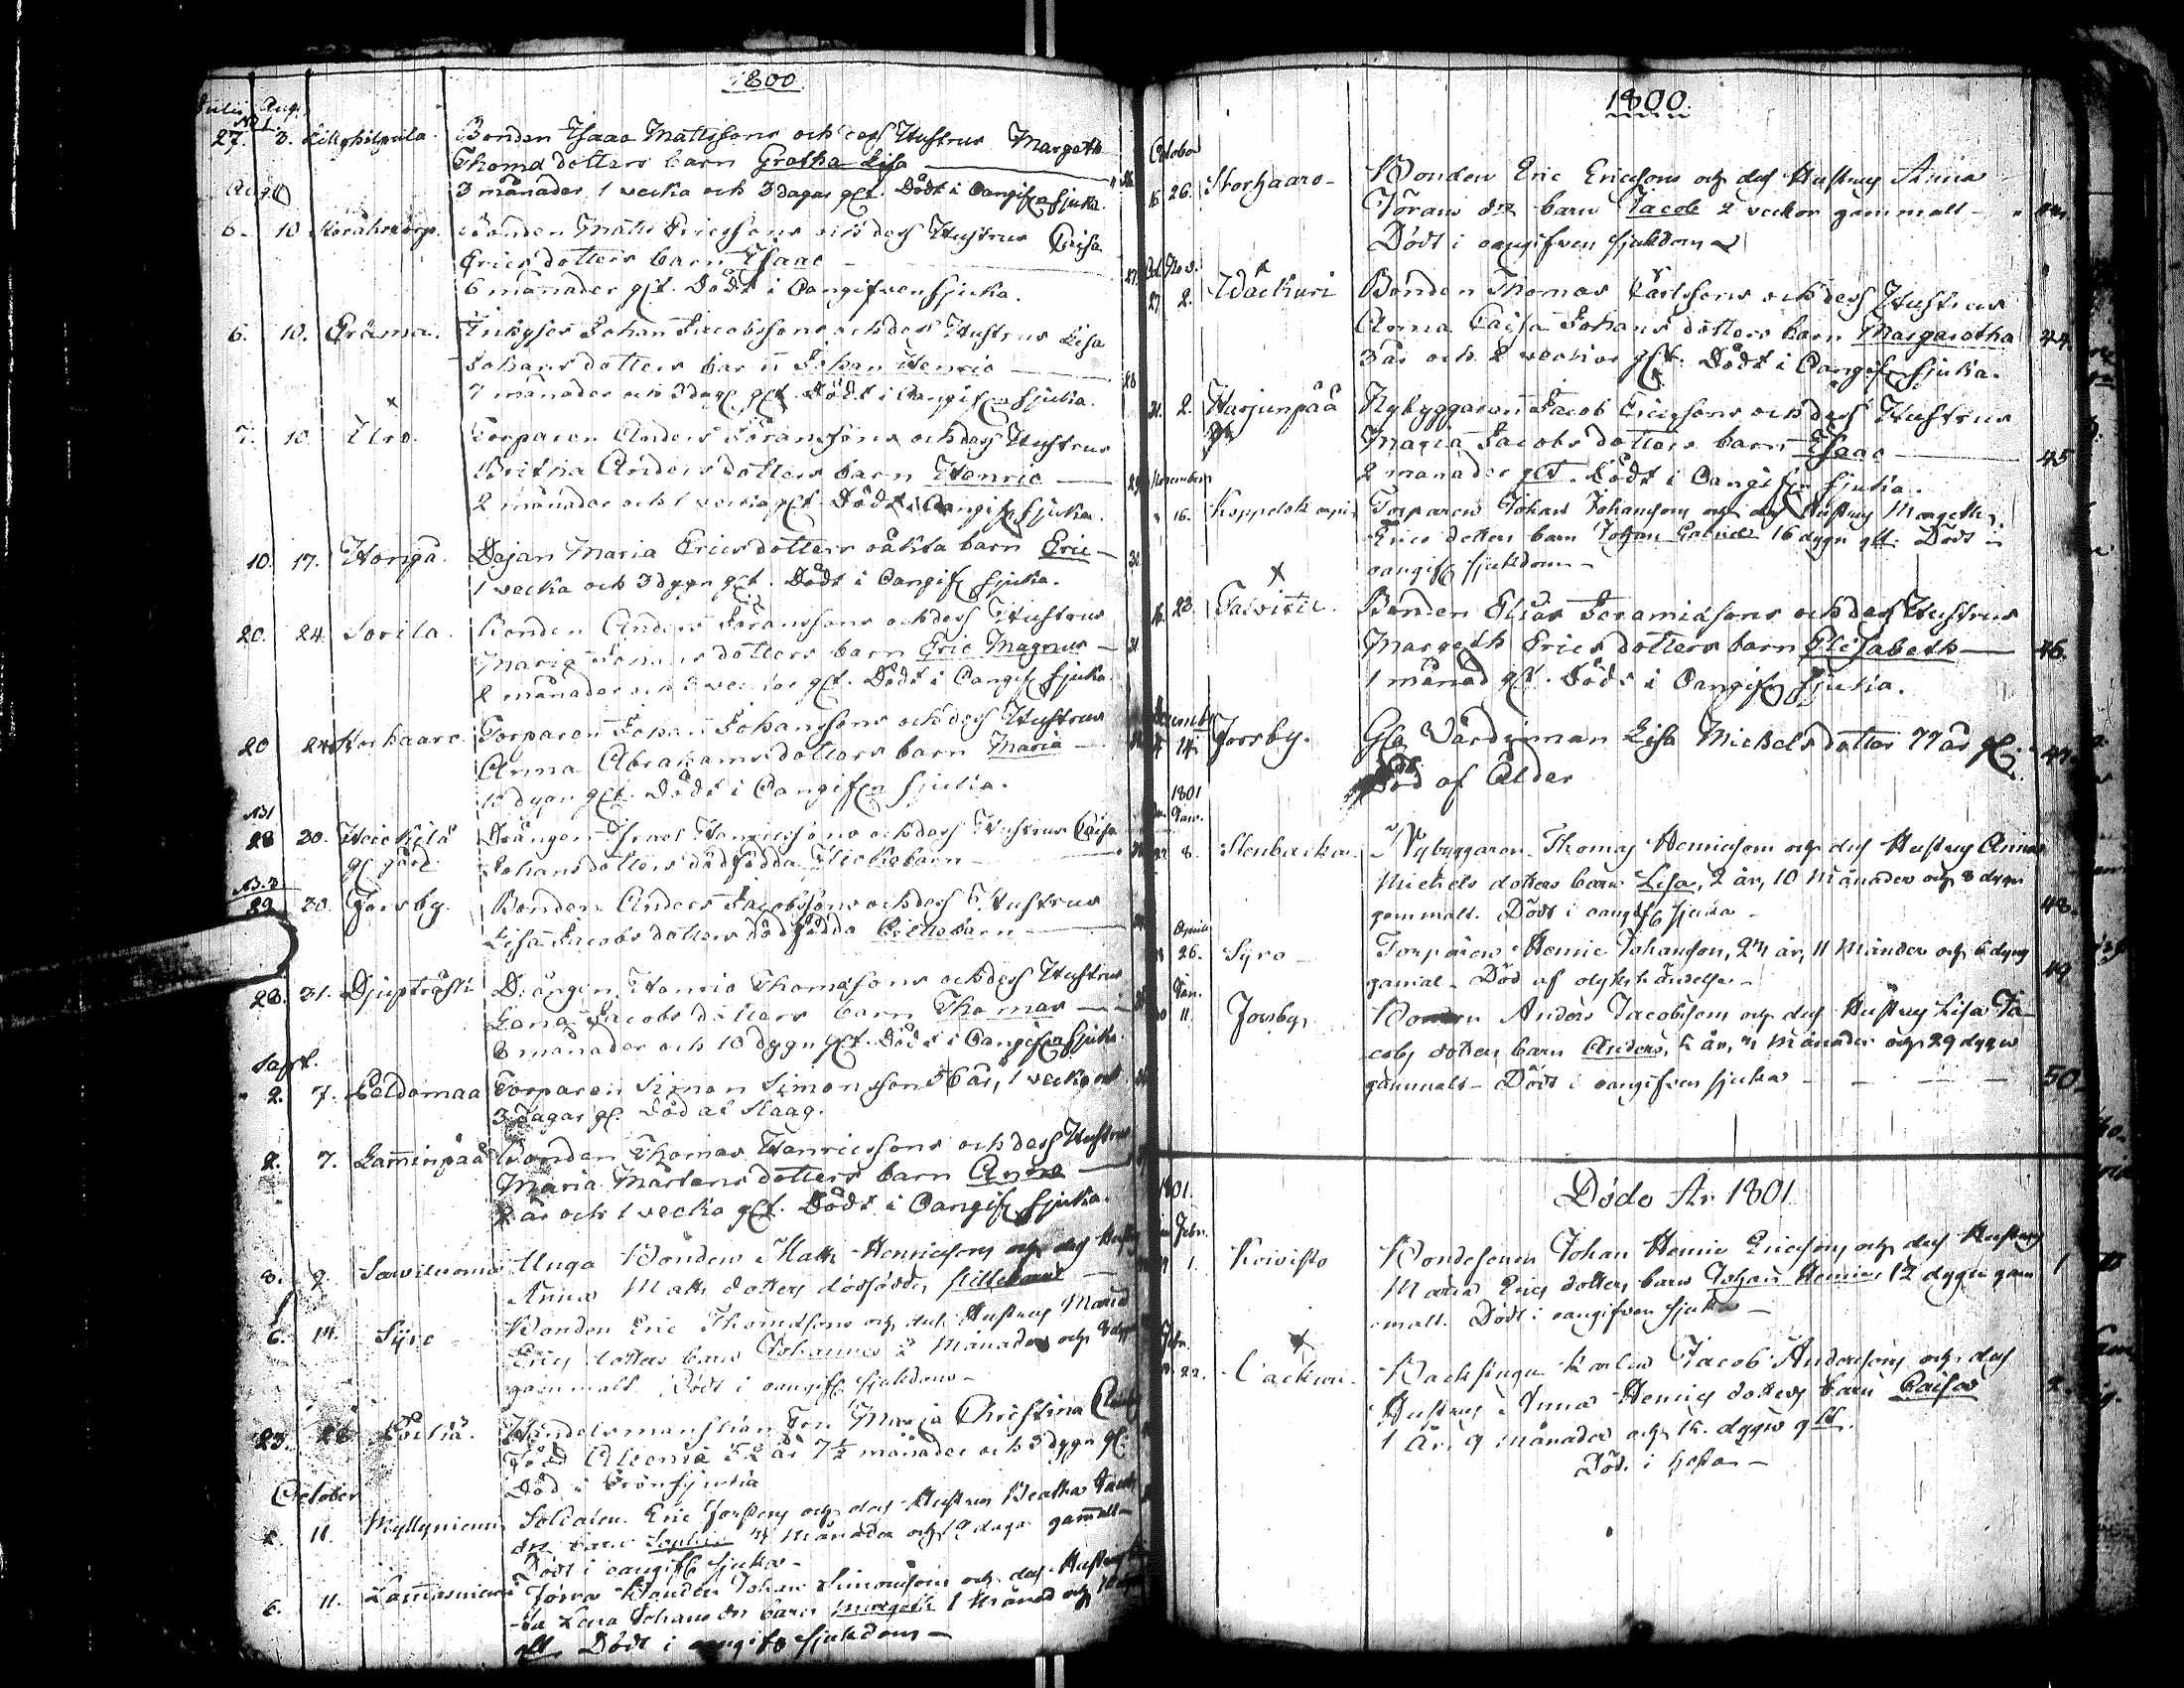 1800.
Julii Aug.
27. 3. Bonden Isaac Mattssons och dess Hustrus Margeth
Thomædotters barn Gretha Lisa
3 månader, 1 vecka och 3 dagar glt. Dödt i Oangifn sjuka.
Aug.
6. 10 Bonden Matts Ericssons och dess Hustrus Caisa
Ericsdotters barn Isaac
6 månader glt. Dödt i Oangifven sjuka.
6. 10. Erämaa. Johan Jacobssons och dess Hustrus Lisa
Johansdotters barn Johan Henric
7 månader och 3 dag. glt. Dödt i Oangifn sjuka.
7. 10. Uro. Torparen Anders Göranssons och dess Hustrus
Britha Andersdotters barn Henric
2 månader och 1 vecka glt. Dödt i Oangif. sjuka.
10. 17. Honga. Pigan Maria Ericsdotters oäkta barn Eric
1 vecka och 3 dygn glt. Dödt i Oangif. sjuka.
20. 24. Sorila. Bonden Anders Göranssons och dess Hustrus
Maria Johansdotters barn Eric Magnus
2 månader och veckor glt. Dödt i Oangif. sjuka.
20 24 Torparen Johan Johanssons och dess Hustrus
Anna Abrahamsdotters barn Maria
10 dygn glt. Dödt i Oangifn sjuka.
28 30. Heickilä Drängen Israel Henricssons och dess Hustrus Caisa
gl. gård. Johansdotters dödfödda Flickebarn
29 30. Forsby. Bonden Anders Jacobssons och dess Hustrus
Lisa Jacobsdotters dödfödda barn
28. 31. Djupträsk Drängen Henric Thomæsons och dess Hustrus
Lena Jacobsdotters barn Thomas
8 månader och 10 dygn glt. Dödt i Oangifn sjuka.
Sept.
2. 7. Peldomaa Torparen Simon Simonsson 56 år, 1 vecka och
3 dagar gl. Död af Slaag.
2. 7. Lamminpää Bonden Thomas Henricssons och dess Hustrus
Maria Mårtensdotters barn Anna
år och 1 vecka glt. Dödt i Oangif. sjuka.
3. 9. Unga Bonden Matts Henricssons och dess Hustrus
Anna Matts dotters dödfödde
6. 14. Syro Bonden Eric Thomæsons och dess Hustrus Maria
Erics dotters barn Johannes 2 Månader och
gammalt. Dödt i oangif. sjukdom
23. 28 Handelsmanskan Fru Maria Christina
Född Alcenia 52 år 7½ månader och 3 dygn gl.
Död i
October
2. 11. Myllyniemi Soldaten Eric Forsberg och dess Hustrus Beatha Jacobs
dr barn Sophia 4 Månader och 9 dagar gammalt
Dödt i oangif. sjuka
6. 11. Bonden Johan Simonssons och dess Hustrus
Lena Johans dr barn Margeth 1 Månad och
glt Dödt i oangifn sjukdom

1800.
October
26. Storhaaro Bonden Eric Ericssons och dess Hustrus Anna
Görans dr barn Jacob 2 veckor gammalt
Dödt i oangifven sjukdom
Oct. Nov.
27 2. Wäckuri Bonden Thomas Carlssons och dess Hustrus
Anna Caisa Johansdotters barn Margaretha 44.
3 år och 2 veckor glt. Dödt i Oangifn sjuka.
31. 2. Harjunpää Nybyggaren Jacob Ericssons och dess Hustrus
Maria Jacobsdotters barn Isaac 45
2 månader glt. Dödt i Oangifn sjuka.
November
16. Torparen Johan Johanssons och dess Hustrus Margeth
Erics dotters barn Johan Gabriel 16 dygn glt. Dödt i
oangif. sjukdom
16. 23. Talvitie. Bonden Elias Jeremiæsons och dess Hustrus
Margeth Ericsdotters barn Elisabeth 46.
1 månad glt. Dödt i Oangifn sjuka.
Decemb.
14. Forsby. Gla Värdinnan Lisa Michelsdotter 77 år gl. 47.
Död af Ålder
1801
Jan.
8. Stenbacka Nybyggaren Thomas Henricssons och dess Hustrus Annas
Michels dotters barn Lisa, 2 år, 10 Månader och 8 dygn
gammalt. Dödt i oangif. sjuka 48.
April
26. Syro Torparen Henric Johansson, 24 år, 11 Månader och 6 dygn
gamal. Död af olyckshändelse 49
Jan.
11. Forsby, Bonden Anders Jacobssons och dess Hustrus Lisa Ja-
cobs dotters barn Anders, 2 år, 4 Månader och 29 dygn
gammalt. Dödt i oangifven sjuka 50.
Döde År 1801
1801.
Febr.
1. Koivisto Bondesonen Johan Henric Ericssons och dess Hustrus 1
Maria Erics dotters barn Johan Henric 12 dygn gam
malt. Dödt i oangifven sjuka
Febr.
22. Backstugu Karlen Jacob Anderssons och dess
Hustrus Anna Henrics dotters barn Caisa 2.
1 år, 9 Månader och 12. dygn glt.
Död. i hosta